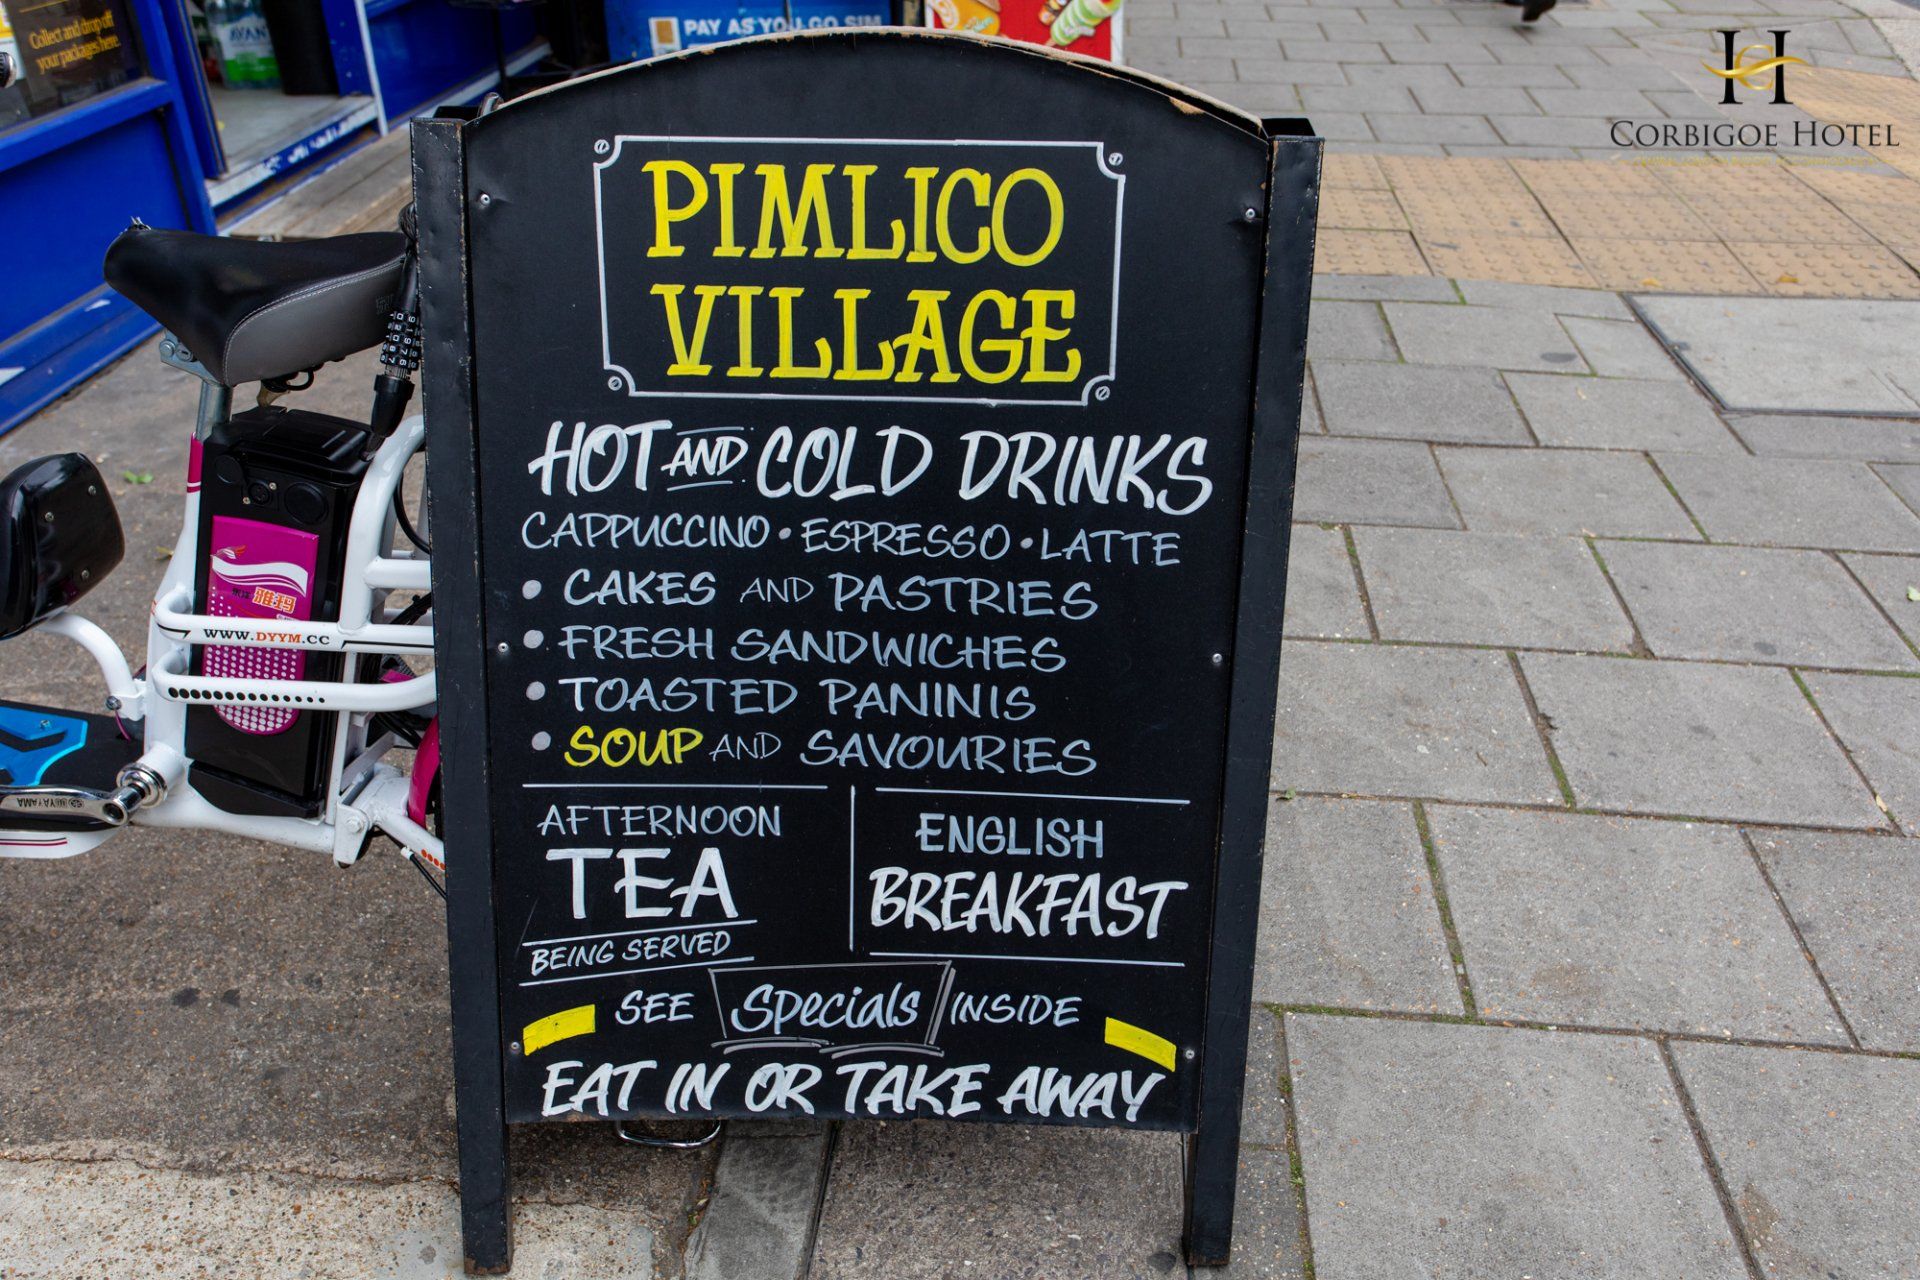 Collect and drop off
your packages here.
PAY AS YOU GO SIM
CORBIGOE HOTEL
PIMLICO
VILLAGE
HOT AND COLD DRINKS
CAPPUCCINO • ESPRESSO • LATTE
• CAKES AND PASTRIES
• FRESH SANDWICHES
• TOASTED PANINIS
• SOUP AND SAVOURIES
AFTERNOON
TEA
BEING SERVED
ENGLISH
BREAKFAST
SEE Specials INSIDE
EAT IN OR TAKE AWAY
雅玛
WWW.DYYM.CC